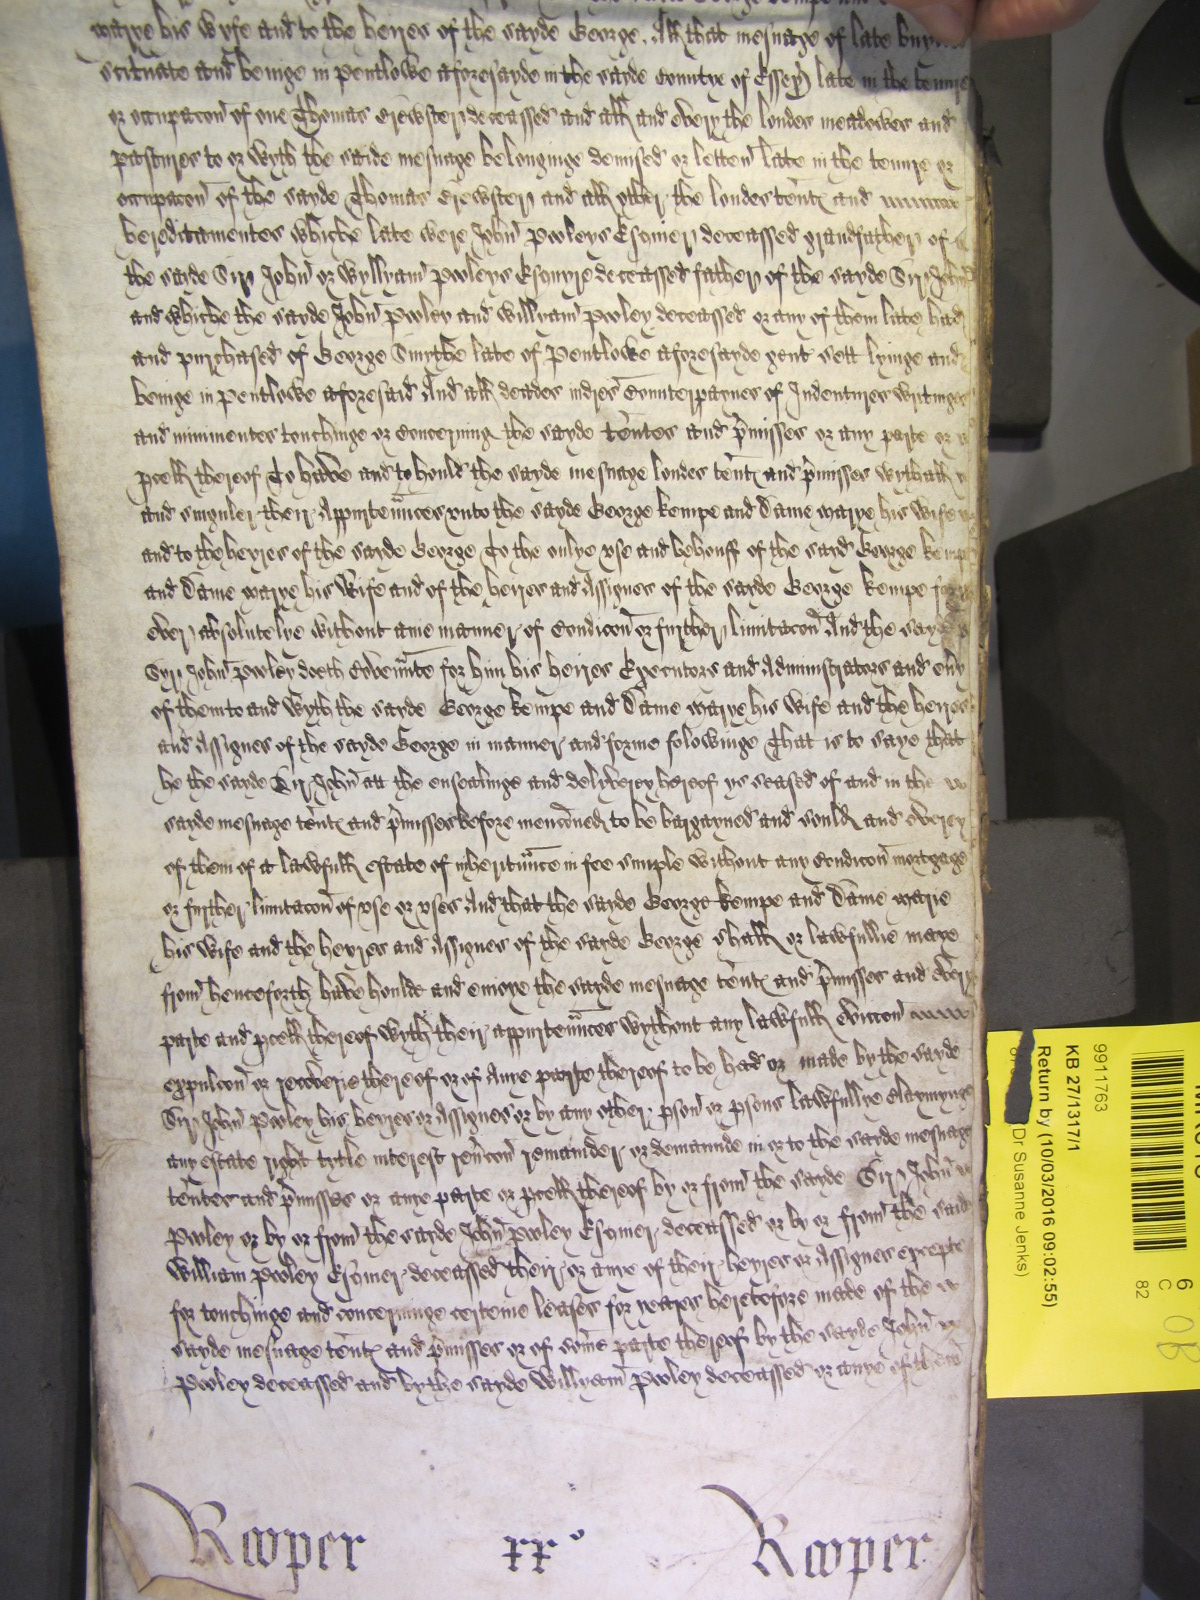 marye his wyfe and to the heires of the sayde George. All that mesuage of late
scituate and beinge in Pentlowe aforesayde in the sayde Countye of Essex late in the tenure
or occupacon of one Thomas Brewster deceassed and all and every the londes meadowes and
pastures to or wyth the saide mesuage belonginge demised or letten late in the tenure or
occupacon of the sayde Thomas Brewster and all other the londes tentes and
hereditamentes whiche late were John Pooleys Esquier deceassed grandfather of
the sayde Sir John or Wyllyam Pooleys Esquyre deceassed father of the sayde Sir John
and whiche the sayde John Pooley and Willyam Pooley deceassed or any of them late had
and purchased of George Smythe late of Pentlowe aforesayde gent sett lyinge and
beinge in Pentlowe aforesaid And all deades indres Counterpaynes of Indentures writinges
and minimentes touchinge or Concerning the sayde tentes and pmisses or any parte or
pcell thereof To have and to hould the sayde mesuage londes tentes and pmisses wyth all
and singuler their Appurtennces vnto the sayde George kempe and Dame marye his wife
and to the heyres of the sayde George To the onlye vse and behouff of the sayd George kempe
and Dame marye his Wife and of the heires and Assignes of the sayde George kempe for
ever absolutelye without anie manner of Condicon or further limitacon And the sayd
Syr John Pooley doeth Covennte for him his heires Executors and Administrators and eny
of them to and wyth the sayde George kempe and Dame marye his wife and the heires
and Assignes of the sayde George in manner and forme folowinge That is to saye that
he the sayde Sir John att the ensealinge and delyverey hereof ys seased of and in the
sayde mesuage tentes and pmisses before mencioned to be bargayned and sould and everey
of them of a lawfull estate of inheritnnce in fee simple without any Condicon mortgage
or further limitacon of vse or vses And that the sayde George kempe and Dame marie
his wife and the heyres and Assignes of the sayde George shall or lawfullie maye
from henceforth have hould and enioye the sayde mesuage tentes and pmisses and every
parte and pcell thereof wyth their appurtennces wythout any lawfull eviccon
expulcon or recoverie thereof or of Anye parte thereof to be had or made by the sayde
Sir John Pooley his heyres or Assignes or by any other pson or psons lawfullye Claymynge
any estate right tytle interest revcon remainder or demaunde in or to the sayde mesuage
tentes and pmisses or anye parte or pcell thereof by or from the sayde Sir John
Pooley or by or from the sayde John Pooley Esquier deceassed or by or from the said
William Pooley Esquier deceassed their or anye of their heyres or Assignes excepte
for touchinge and concerninge certeine leases for yeares heretofore made of the
sayde mesuage tentes and pmisses or of some parte thereof by the sayde John
Pooley deceassed and by the sayde Willyam Pooley deceassed or anye of them
Rooper xx° Rooper
9911763
KB 27/1317/1
Return by (10/03/2016 09:02:55)
Dr Susanne Jenks)
6
C
82